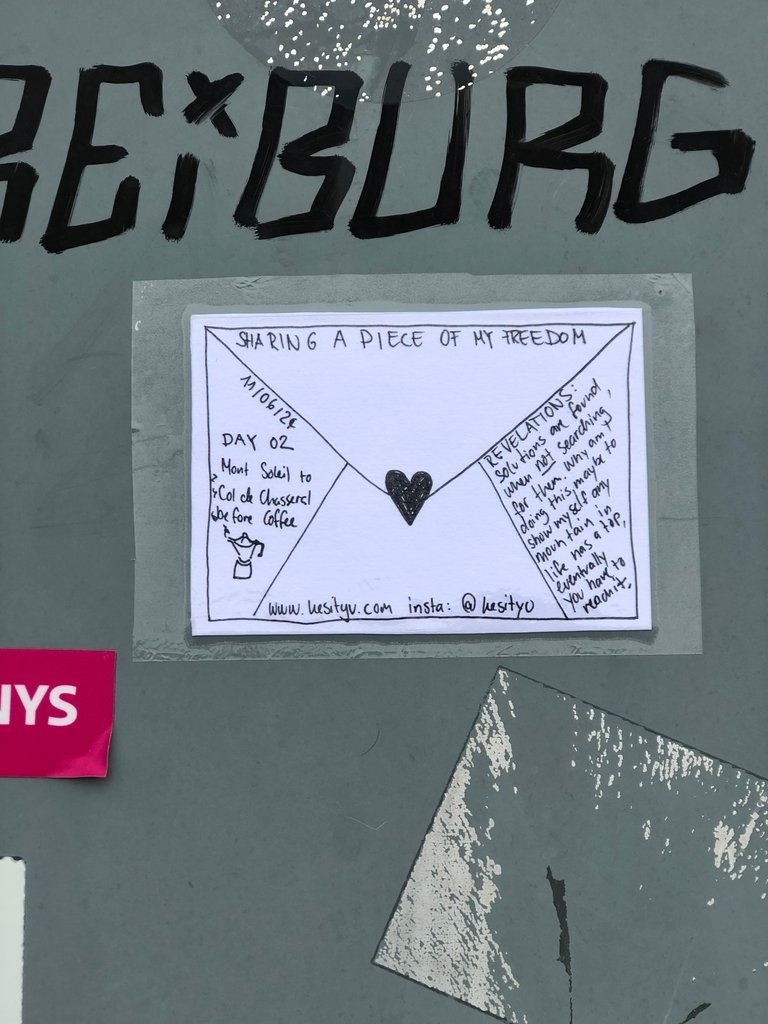 REiBURG
SHARING A PIECE OF MY FREEDOM
11/06/24
DAY 02
Mont Soleil to
Col de Chasseral
before Coffee
REVELATIONS:
solutions are found
when not searching
for them. Why am I
doing this, maybe to
show myself any
mountain in
life has a top,
eventually
you have to
reach it.
insta:
NYS